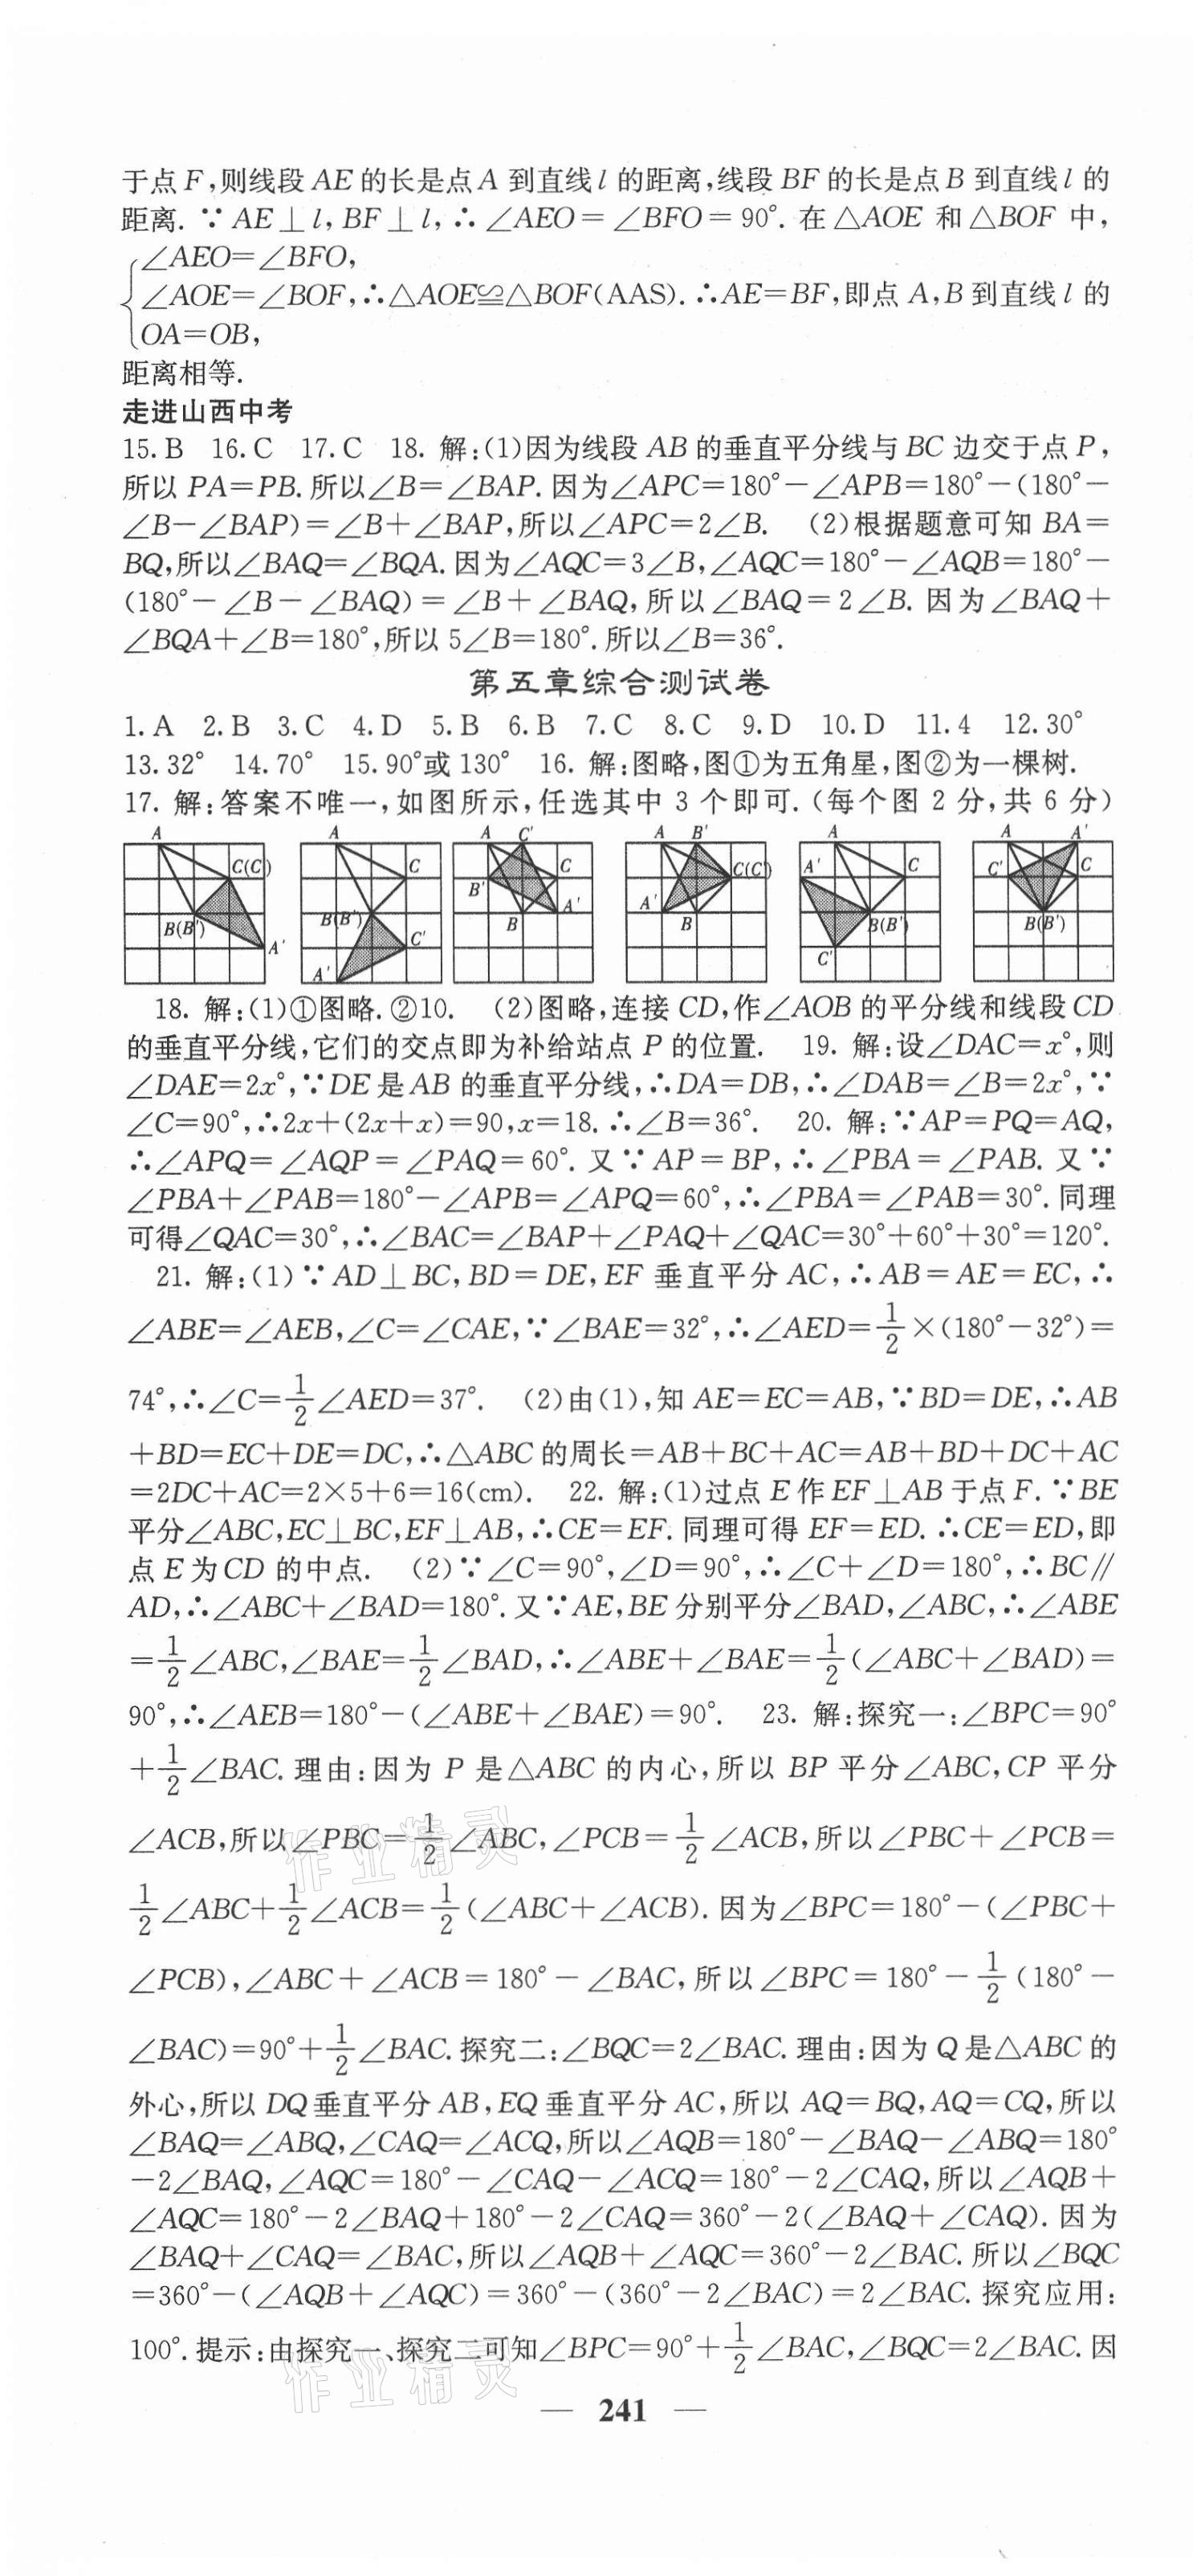 于点F,则线段AE的长是点A到直线l的距离,线段BF的长是点B到直线l的
距离.∵AE⊥l,BF⊥l,∴∠AEO=∠BFO=90°.在△AOE和△BOF中,
∠AEO=∠BFO,
∠AOE=∠BOF,∴△AOE≌△BOF(AAS).∴AE=BF,即点A,B到直线l的
OA=OB,
距离相等.
走进山西中考
15.B 16.C 17.C 18.解:(1)因为线段AB的垂直平分线与BC边交于点P,
所以PA=PB.所以∠B=∠BAP.因为∠APC=180°-∠APB=180°-(180°-
∠B-∠BAP)=∠B+∠BAP,所以∠APC=2∠B. (2)根据题意可知BA=
BQ,所以∠BAQ=∠BQA.因为∠AQC=3∠B,∠AQC=180°-∠AQB=180°-
(180°-∠B-∠BAQ)=∠B+∠BAQ,所以∠BAQ=2∠B.因为∠BAQ+
∠BQA+∠B=180°,所以5∠B=180°.所以∠B=36°.
第五章综合测试卷
1.A 2.B 3.C 4.D 5.B 6.B 7.C 8.C 9.D 10.D 11.4 12.30°
13.32° 14.70° 15.90°或130° 16.解:图略,图①为五角星,图②为一棵树.
17.解:答案不唯一,如图所示,任选其中3个即可.(每个图2分,共6分)
A C(C') B(B') A'
A C B(B') C' A'
A C' C B' A' B
A B' C(C') A' B
A A' C B(B') C'
A A' C' C B(B')
18.解:(1)①图略.②10. (2)图略,连接CD,作∠AOB的平分线和线段CD
的垂直平分线,它们的交点即为补给站点P的位置. 19.解:设∠DAC=x°,则
∠DAE=2x°,∵DE是AB的垂直平分线,∴DA=DB,∴∠DAB=∠B=2x°,∵
∠C=90°,∴2x+(2x+x)=90,x=18.∴∠B=36°. 20.解:∵AP=PQ=AQ,
∴∠APQ=∠AQP=∠PAQ=60°.又∵AP=BP,∴∠PBA=∠PAB.又∵
∠PBA+∠PAB=180°-∠APB=∠APQ=60°,∴∠PBA=∠PAB=30°.同理
可得∠QAC=30°,∴∠BAC=∠BAP+∠PAQ+∠QAC=30°+60°+30°=120°.
21.解:(1)∵AD⊥BC,BD=DE,EF垂直平分AC,∴AB=AE=EC,∴
∠ABE=∠AEB,∠C=∠CAE,∵∠BAE=32°,∴∠AED=1/2×(180°-32°)=
74°,∴∠C=1/2∠AED=37°. (2)由(1),知AE=EC=AB,∵BD=DE,∴AB
+BD=EC+DE=DC,∴△ABC的周长=AB+BC+AC=AB+BD+DC+AC
=2DC+AC=2×5+6=16(cm). 22.解:(1)过点E作EF⊥AB于点F.∵BE
平分∠ABC,EC⊥BC,EF⊥AB,∴CE=EF.同理可得EF=ED.∴CE=ED,即
点E为CD的中点. (2)∵∠C=90°,∠D=90°,∴∠C+∠D=180°,∴BC∥
AD,∴∠ABC+∠BAD=180°.又∵AE,BE分别平分∠BAD,∠ABC,∴∠ABE
=1/2∠ABC,∠BAE=1/2∠BAD,∴∠ABE+∠BAE=1/2(∠ABC+∠BAD)=
90°,∴∠AEB=180°-(∠ABE+∠BAE)=90°. 23.解:探究一:∠BPC=90°
+1/2∠BAC.理由:因为P是△ABC的内心,所以BP平分∠ABC,CP平分
∠ACB,所以∠PBC=1/2∠ABC,∠PCB=1/2∠ACB,所以∠PBC+∠PCB=
1/2∠ABC+1/2∠ACB=1/2(∠ABC+∠ACB).因为∠BPC=180°-(∠PBC+
∠PCB),∠ABC+∠ACB=180°-∠BAC,所以∠BPC=180°-1/2(180°-
∠BAC)=90°+1/2∠BAC.探究二:∠BQC=2∠BAC.理由:因为Q是△ABC的
外心,所以DQ垂直平分AB,EQ垂直平分AC,所以AQ=BQ,AQ=CQ,所以
∠BAQ=∠ABQ,∠CAQ=∠ACQ,所以∠AQB=180°-∠BAQ-∠ABQ=180°
-2∠BAQ,∠AQC=180°-∠CAQ-∠ACQ=180°-2∠CAQ,所以∠AQB+
∠AQC=180°-2∠BAQ+180°-2∠CAQ=360°-2(∠BAQ+∠CAQ).因为
∠BAQ+∠CAQ=∠BAC,所以∠AQB+∠AQC=360°-2∠BAC.所以∠BQC
=360°-(∠AQB+∠AQC)=360°-(360°-2∠BAC)=2∠BAC.探究应用:
100°.提示:由探究一、探究二可知∠BPC=90°+1/2∠BAC,∠BQC=2∠BAC.因
— 241 —
作业精灵
作业精灵